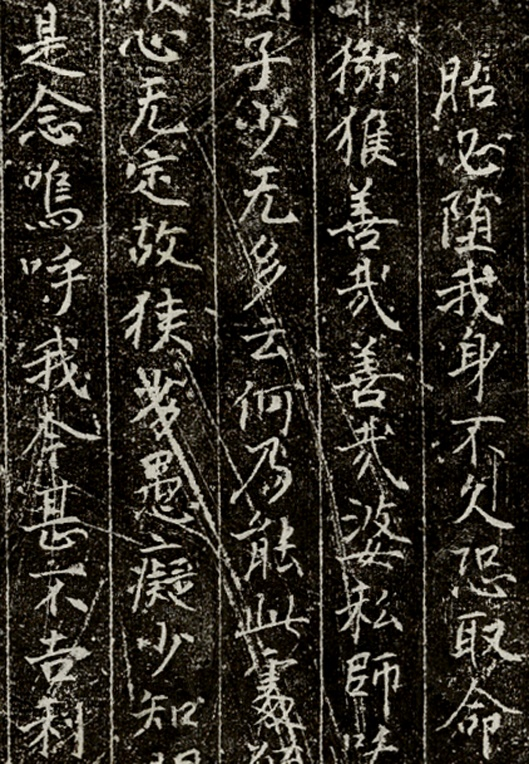 胎必随我身不久恐取命
猕猴善哉善哉婆私師
子少无多云何乃能此處
心无定故狭劣愚癡少知
是念嗚呼我今甚不吉利